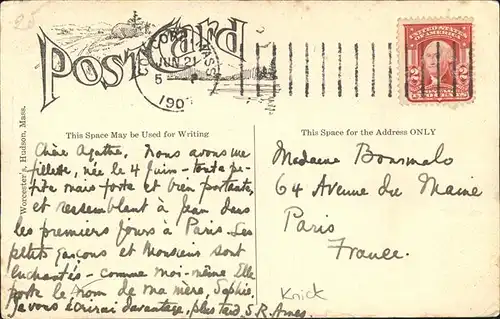 25
Post Card
MASS.
JUN 21
5 P
190
UNITED STATES OF AMERICA
2 2
TWO CENTS
Worcester's, Hudson, Mass.
This Space May be Used for Writing
This Space for the Address ONLY
Chère Agathe, Nous avons une
fillette, née le 4 Juin – toute pe-
tite mais forte et bien portante,
et ressemblant à Jean dans
les premiers jours à Paris. Les
petits garçons et Monsieur sont
enchantés – comme moi-même. Elle
porte le nom de ma mère, Sophie.
Je vous écrirai davantage, plus tard. S. R. Ames.
Madame Bonmalo
64 Avenue du Maine
Paris
France.
Knick